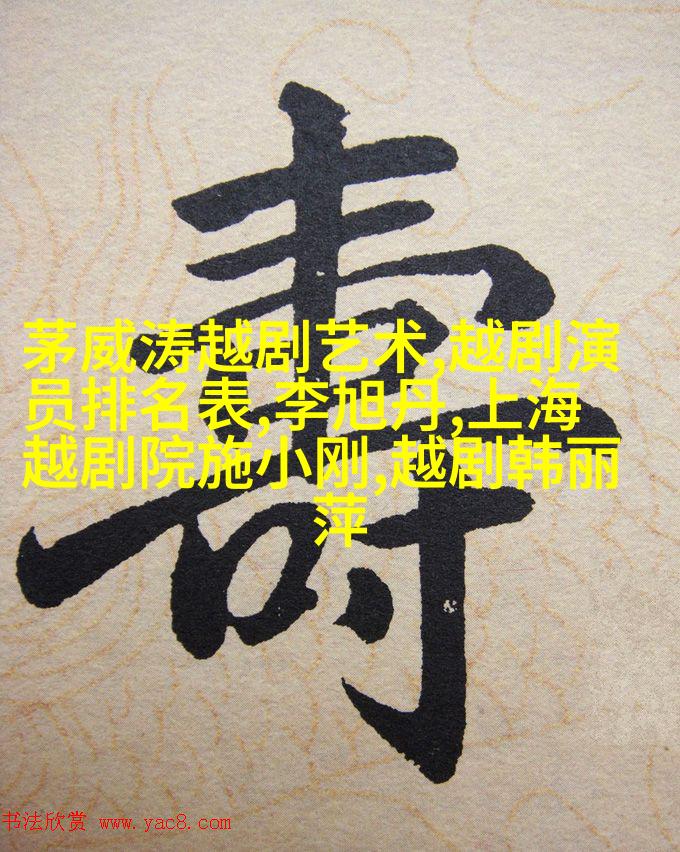 壽
茅威涛越剧艺术,越剧演
员排名表,李旭丹,上海
越剧院施小刚,越剧韩丽
萍
书法欣赏 www.yac8.com